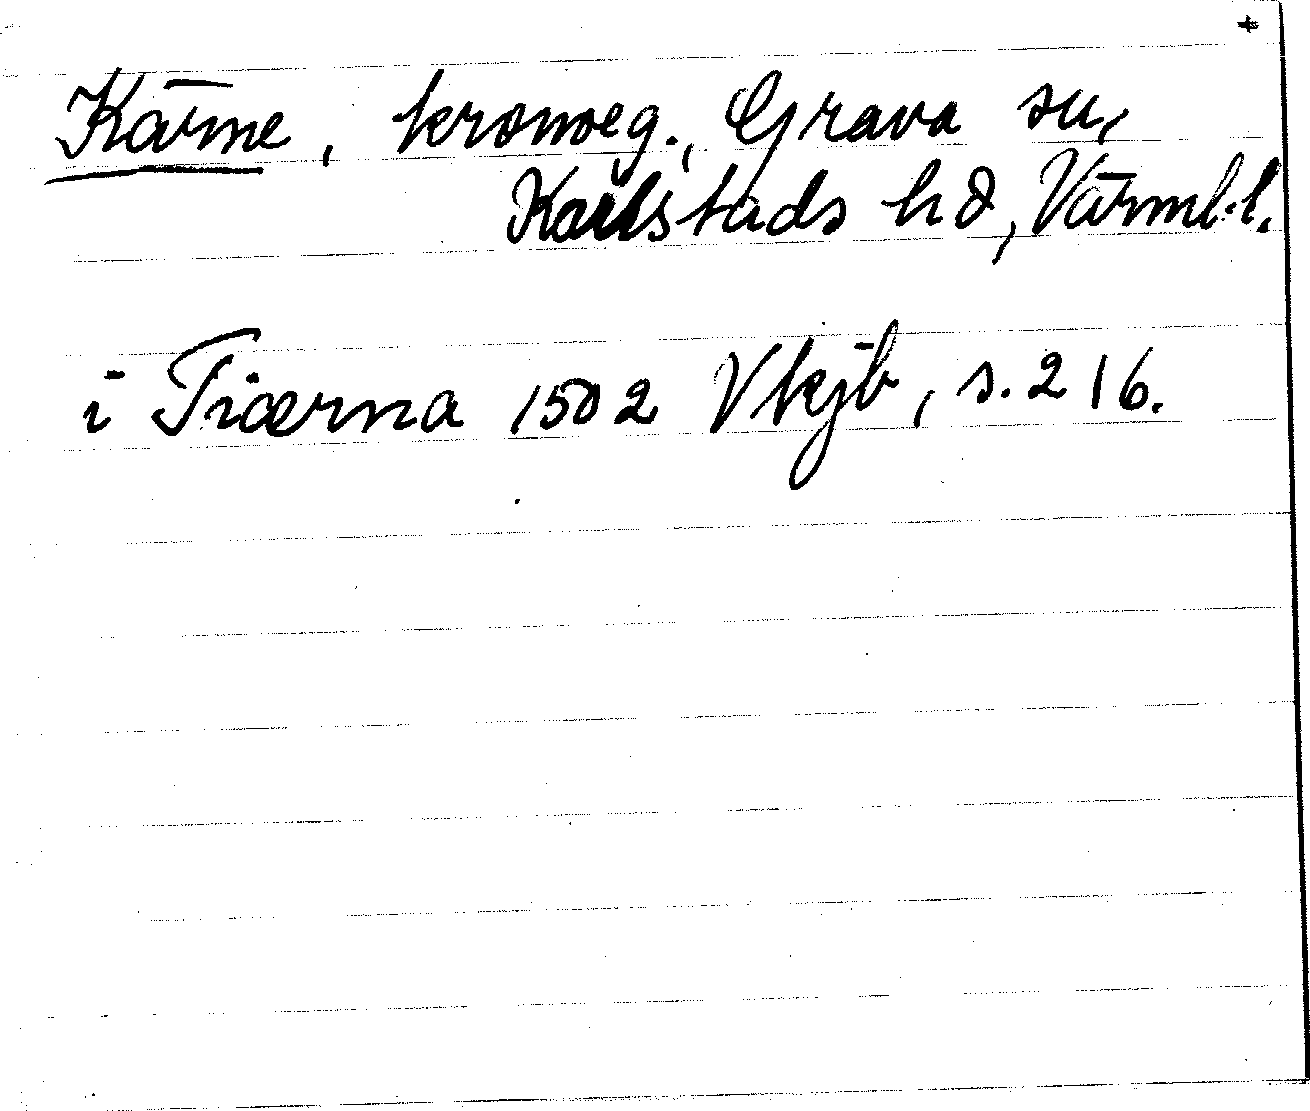 +
Kärne, kronoeg., Grava sn,
Karlstads hd, Värml. l.
i Tiærna 1502 Vkjb, s. 216.